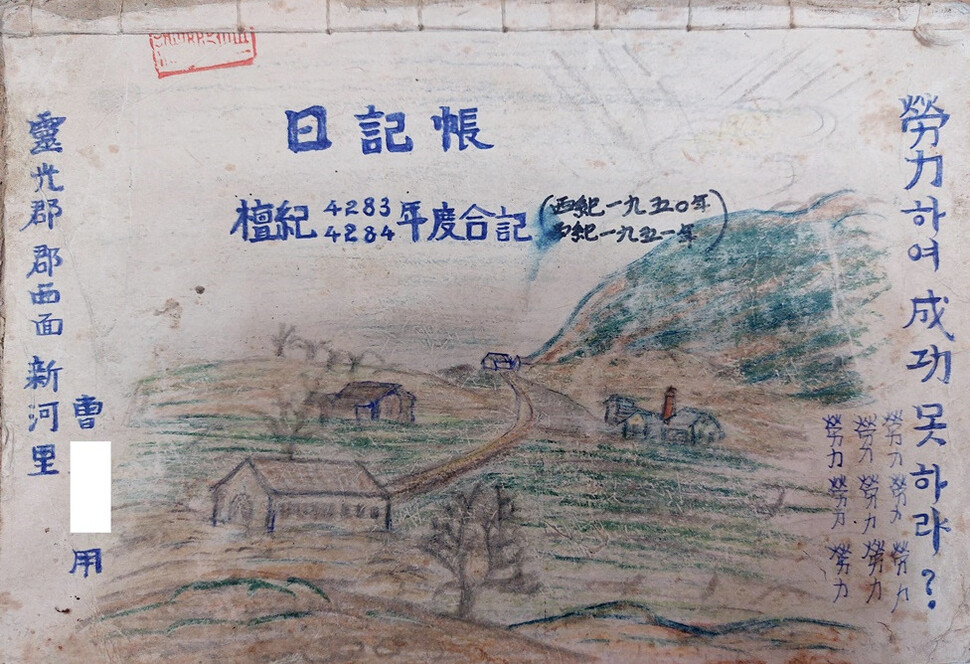 日記帳
檀紀 4283 4284 年度合記
(西紀一九五〇年
西紀一九五一年)
勞力하여 成功 못하랴?
勞力 勞力 勞力
勞力 勞力 勞力
勞力 勞力 勞力
靈光郡 郡西面 新河里
曺 用